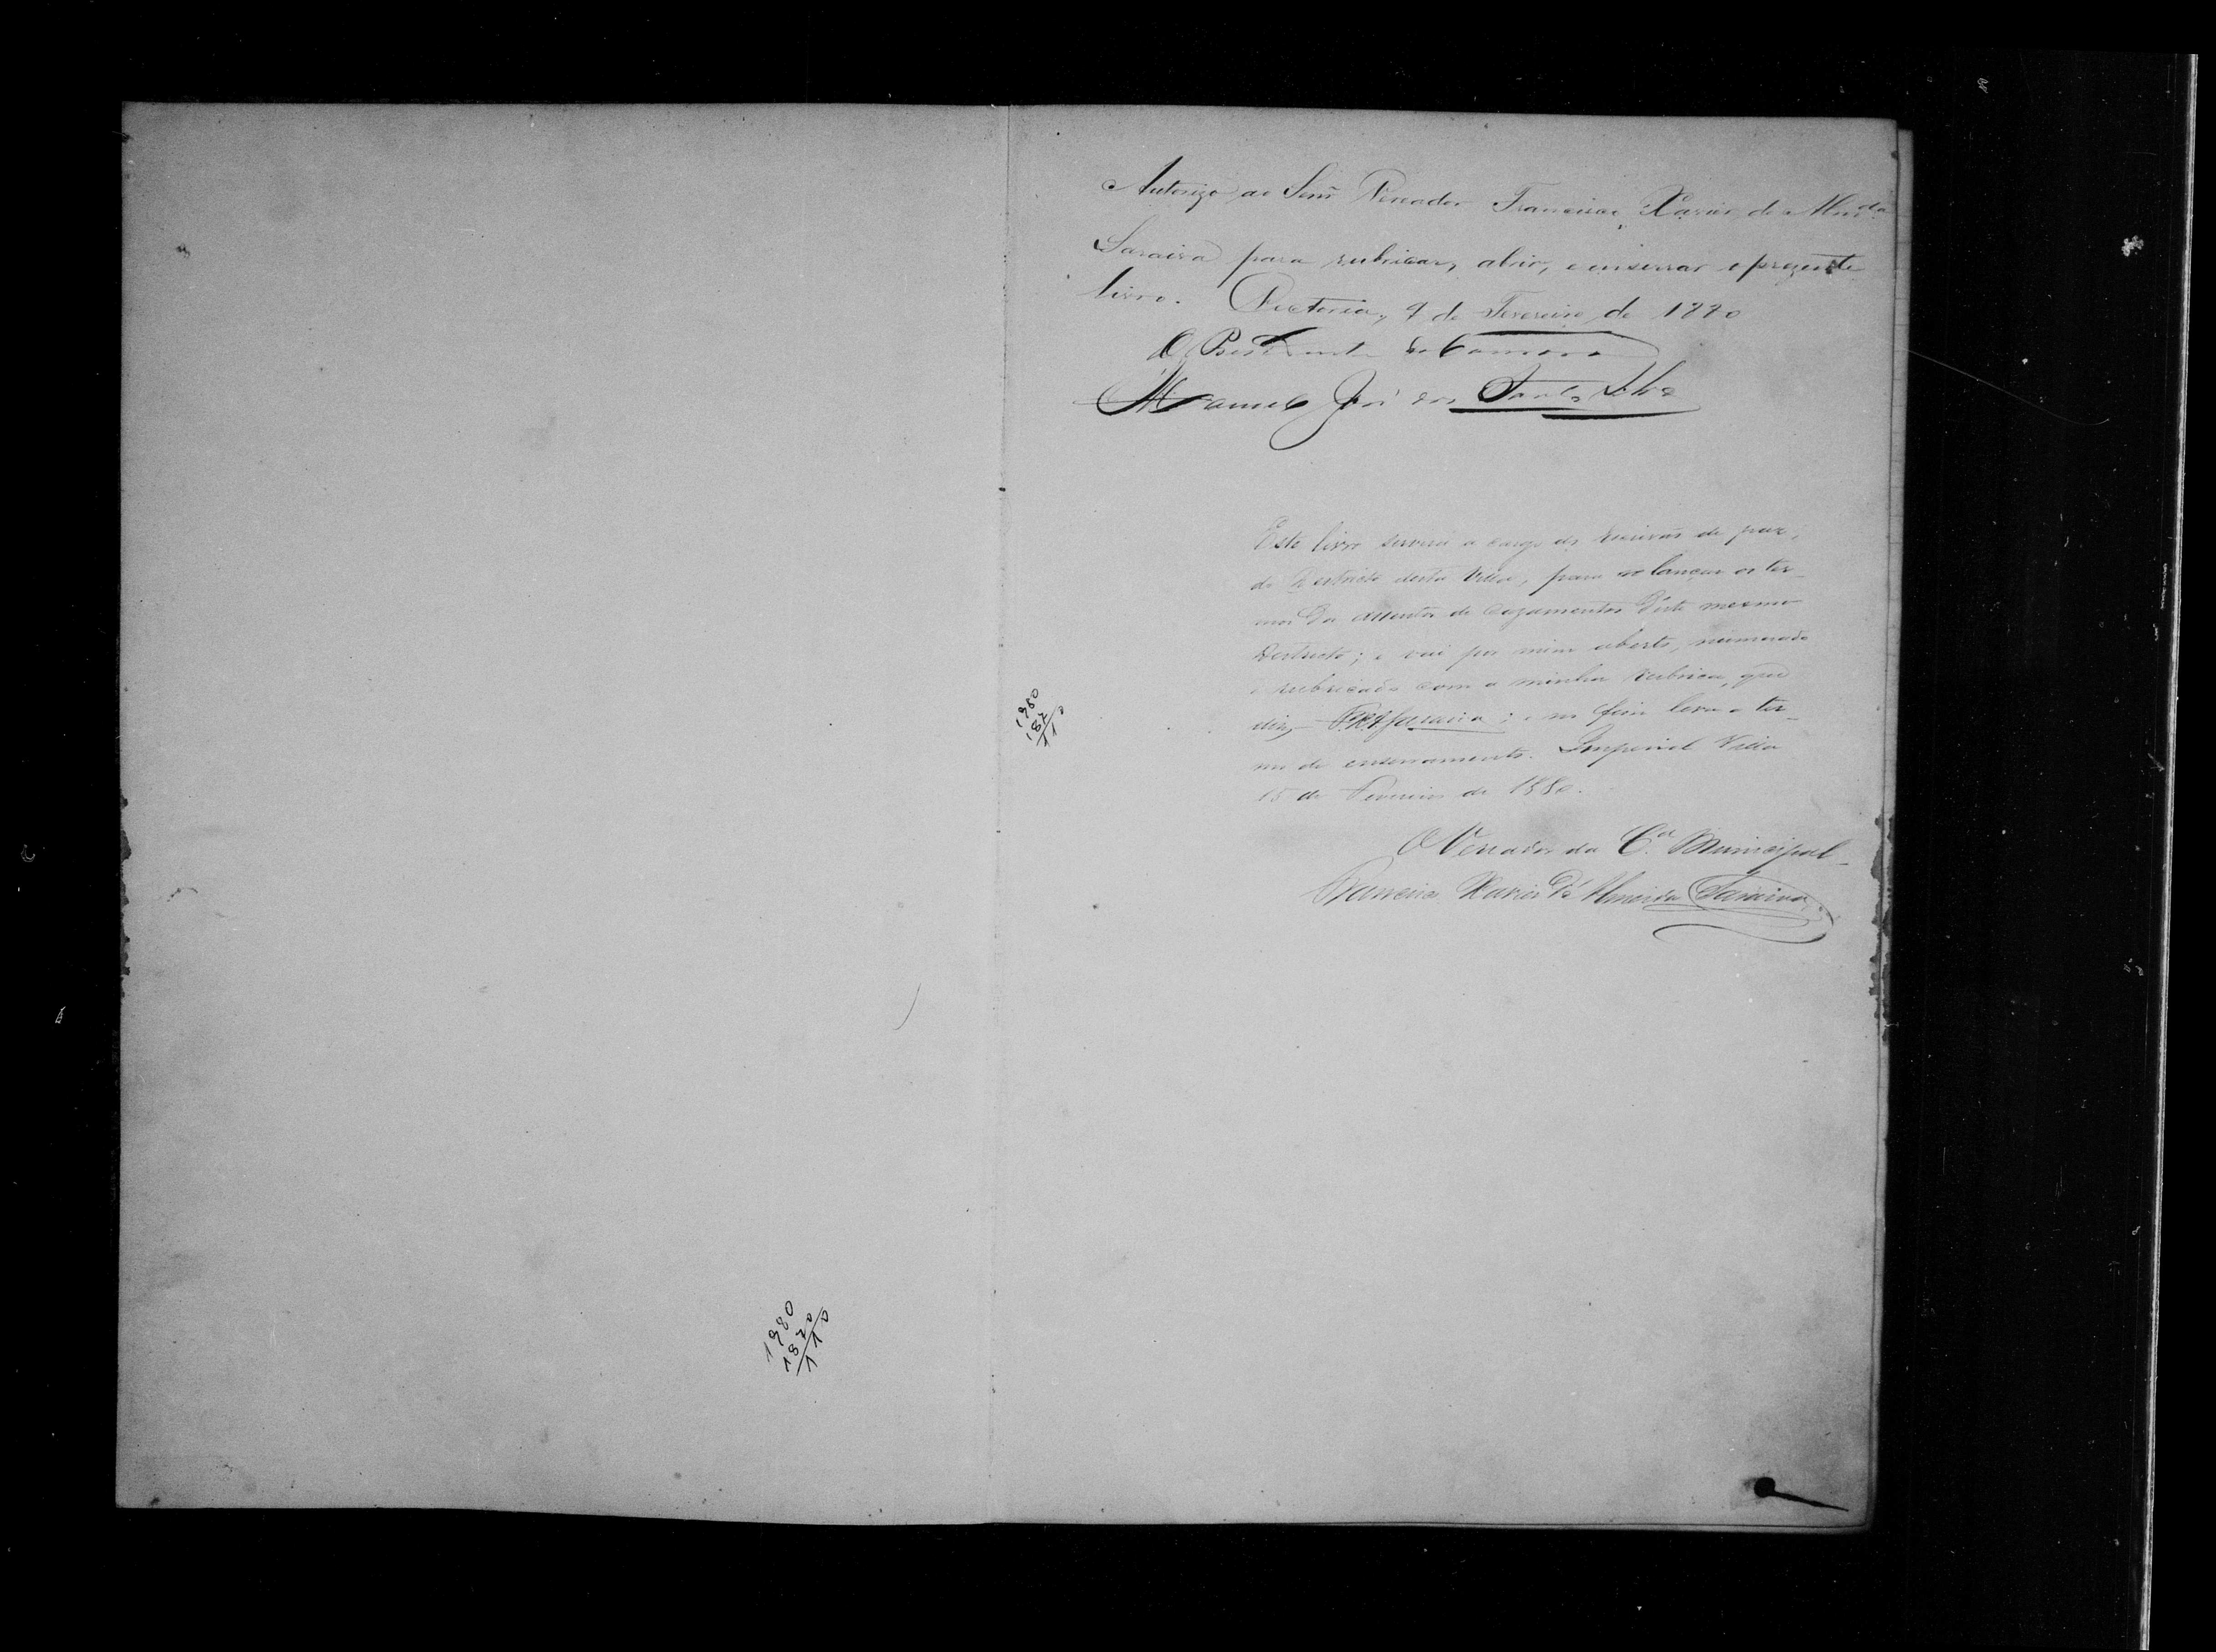 Autorizo ao Senr Vereador Francisco Xavier de Almda
Saraiva para rubricar, abrir, e enserrar o prezente
livro. Victoria, 9 de Fevereiro de 1880
O Presidente da Camara
Manuel José dos Santos Silva
Este livro servirá a cargo do Escrivão de paz,
do Destricto desta Villa, para se lançar os ter-
mos da assentos de Cazamentos d'este mesmo
Destricto; e vai por mim aberto, numerado
e rubricado com a minha Rubrica, que
diz, F.X.A Saraiva; e no fim leva o ter-
mo de enserramento. Imperial Villa
15 de Fevereiro de 1880.
O Vereador da Ca. Municipal
Francisco Xavier d'Almeida Saraiva
1980
187
110
1980
1870
110